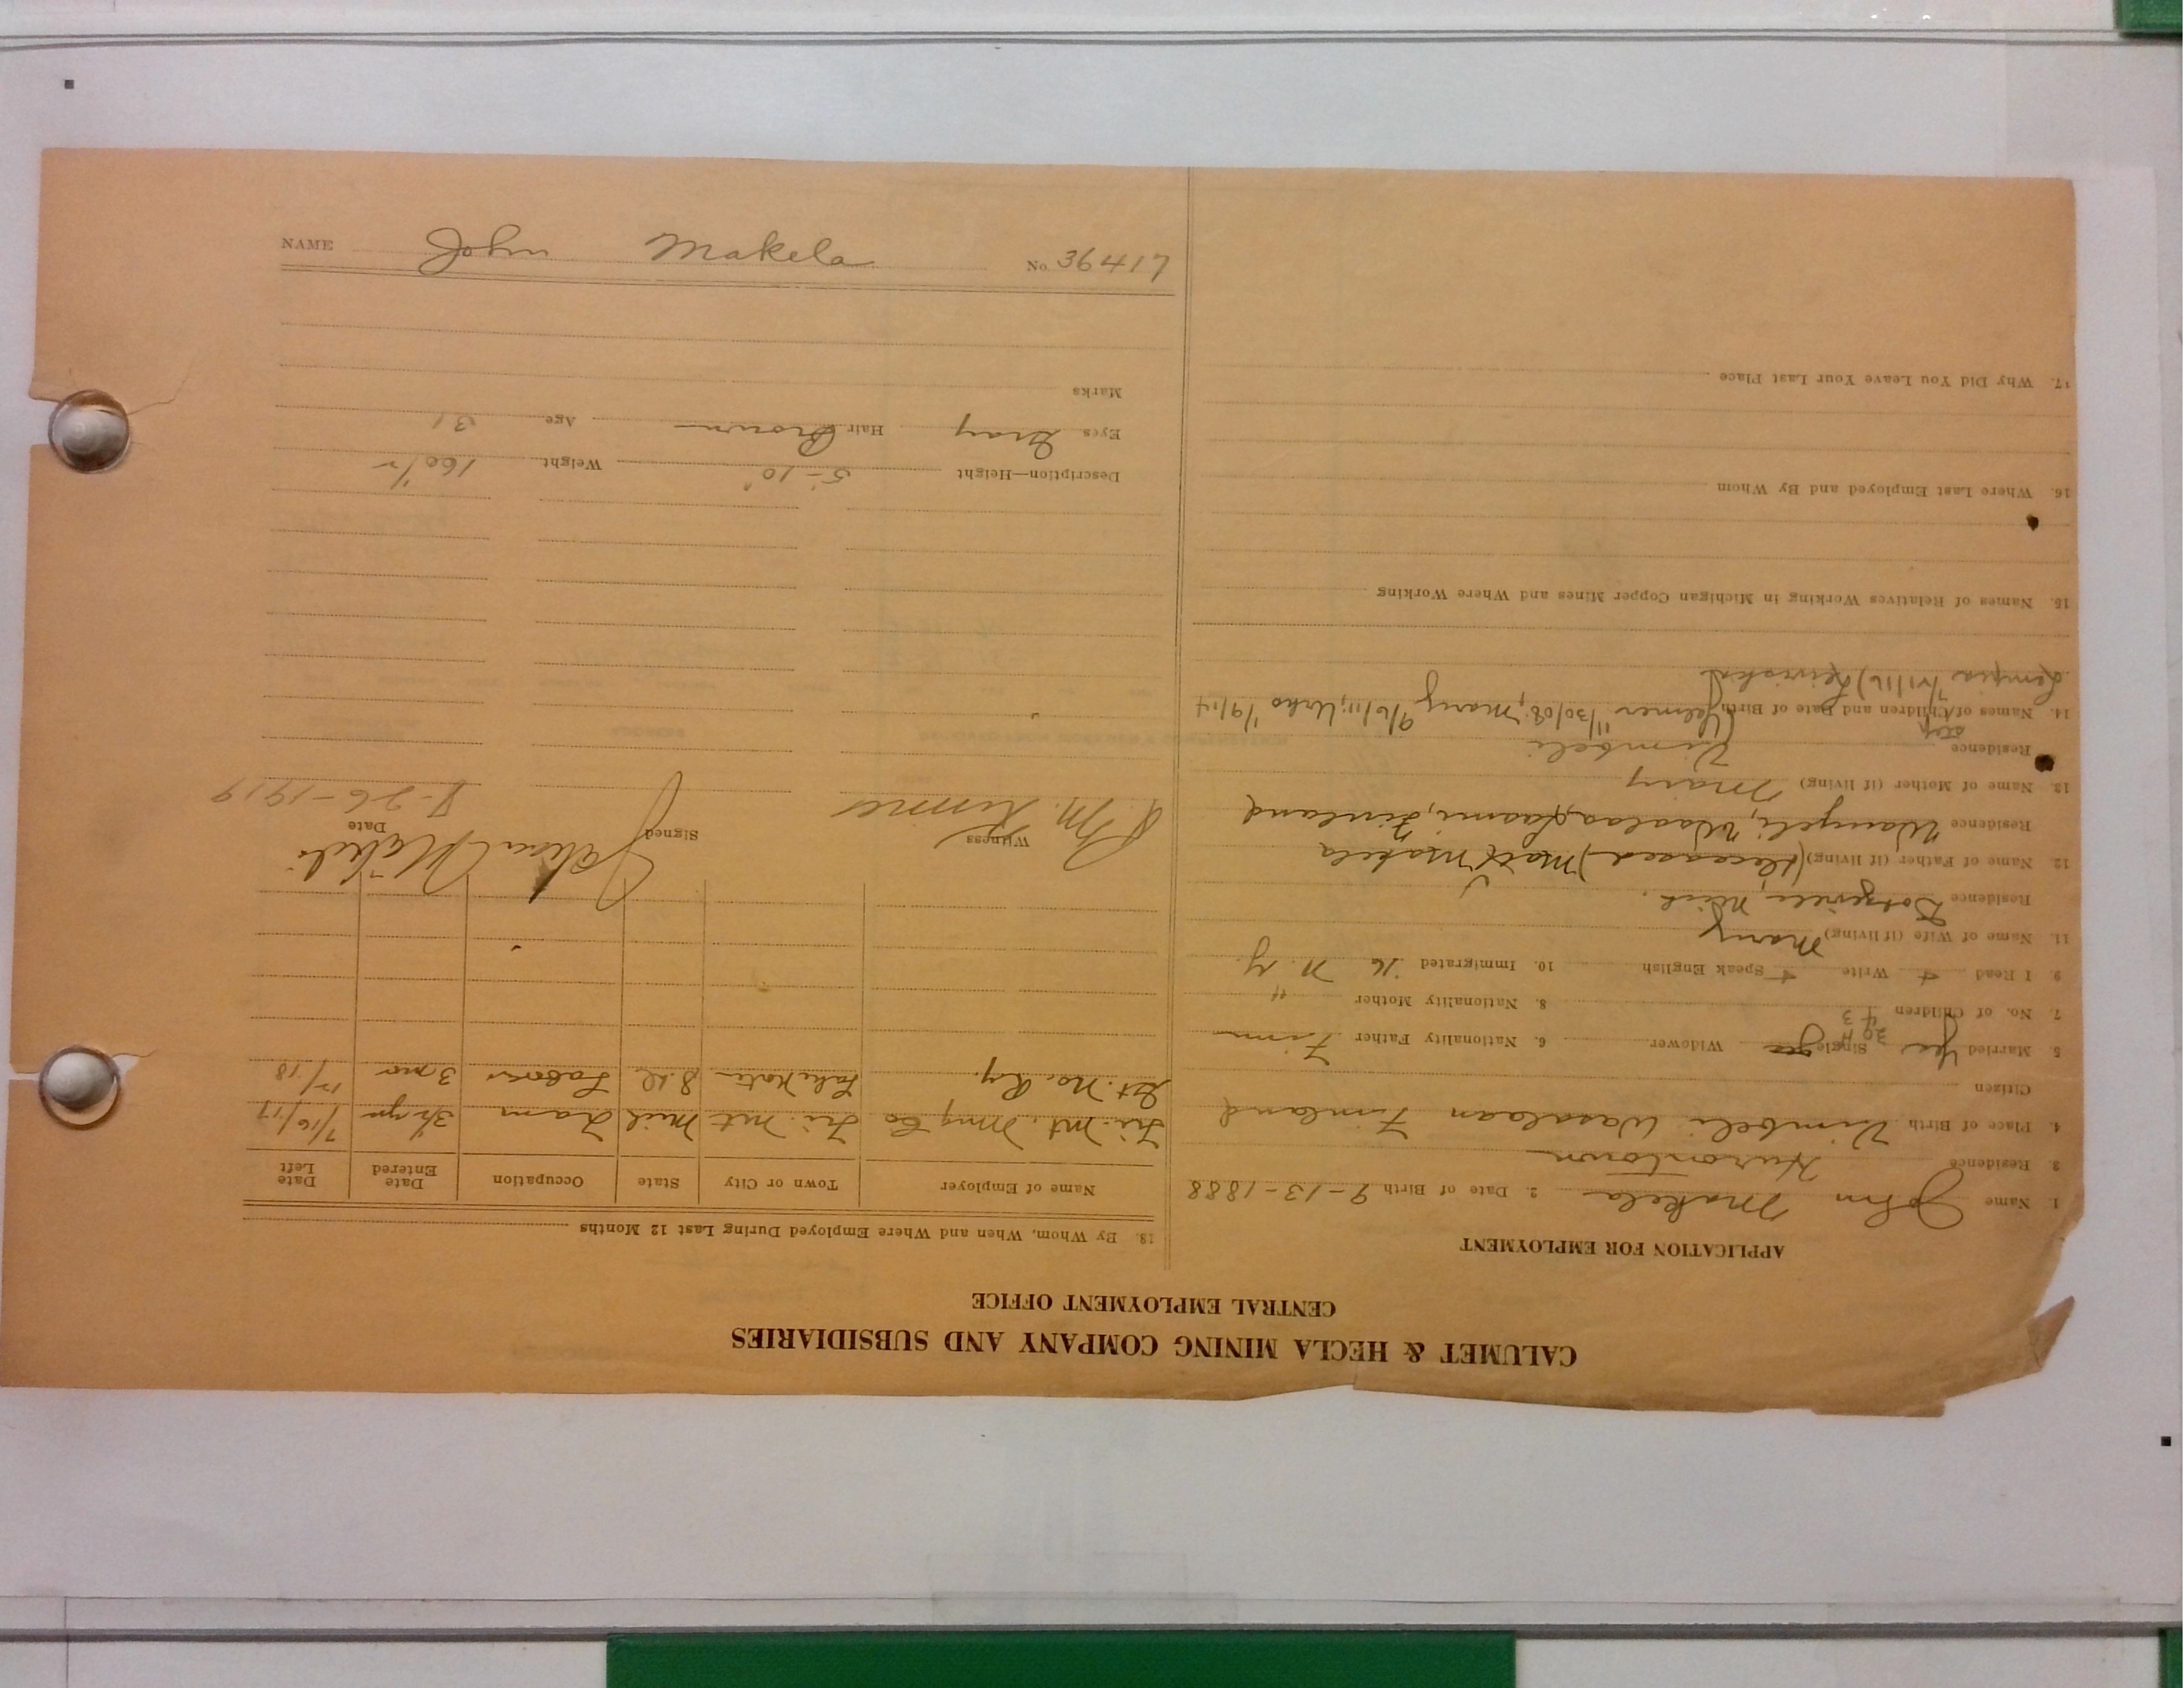 NAME John Makela No. 36417
CALUMET & HECLA MINING COMPANY AND SUBSIDIARIES
CENTRAL EMPLOYMENT OFFICE
APPLICATION FOR EMPLOYMENT
1. Name John Makela 2. Date of Birth 9-13-1888
3. Residence Hurontown
4. Place of Birth Vimbeli Wasalaan Finland
Citizen
5. Married Yes Single Widower 6. Nationality Father Finn
7. No. of Children 4 3 8. Nationality Mother "
9 I Read + Write + Speak English 10. Immigrated '16 N.Y.
11. Name of Wife (if living) Mary
Residence Mich.
12. Name of Father (if living) (deceased) Matt Makela
Residence Finland
13. Name of Mother (if living) Mary
Residence Vimbeli
step
14. Names of Children and Date of Birth (Helmer 11/30/08, Mary 9/6/11, Urho 1/9/14
Lempia
15. Names of Relatives Working in Michigan Copper Mines and Where Working
16. Where Last Employed and By Whom
17. Why Did You Leave Your Last Place
18. By Whom, When and Where Employed During Last 12 Months
Name of Employer Town or City State Occupation Date Entered Date Left
Tri. Mt. Mng Co Tri. Mt Mich Tram 3½ yr 7/16/17
Gt. No. Ry. Labor 3 mo 12/18
Witness Signed John Mäkelä Date 8-26-1919
Description—Height 5-10" Weight 160½
Eyes Gray Hair Brown Age 31
Marks